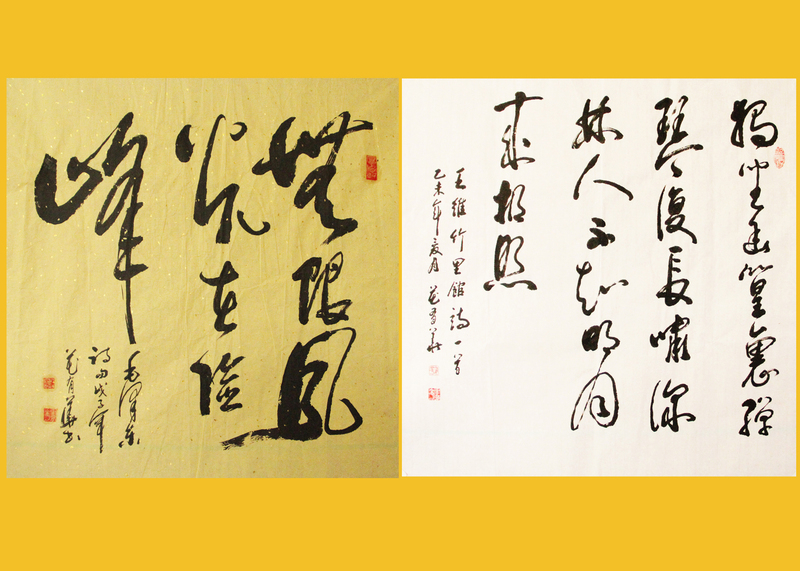 無限風
光在險
峰
毛澤東
詩句戊子年
有華書
獨坐幽篁裏彈
琴復長嘯深
林人不知明月
來相照
王維竹里館詩一首
乙未年夏月